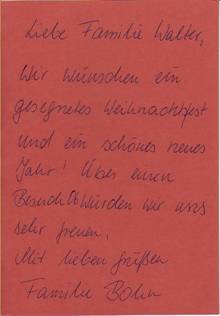 Liebe Familie Walter,
Wir wünschen ein
gesegnetes Weihnachtsfest
und ein schönes neues
Jahr! Über einen
Besuch würden wir uns
sehr freuen.
Mit lieben Grüßen
Familie Bohn